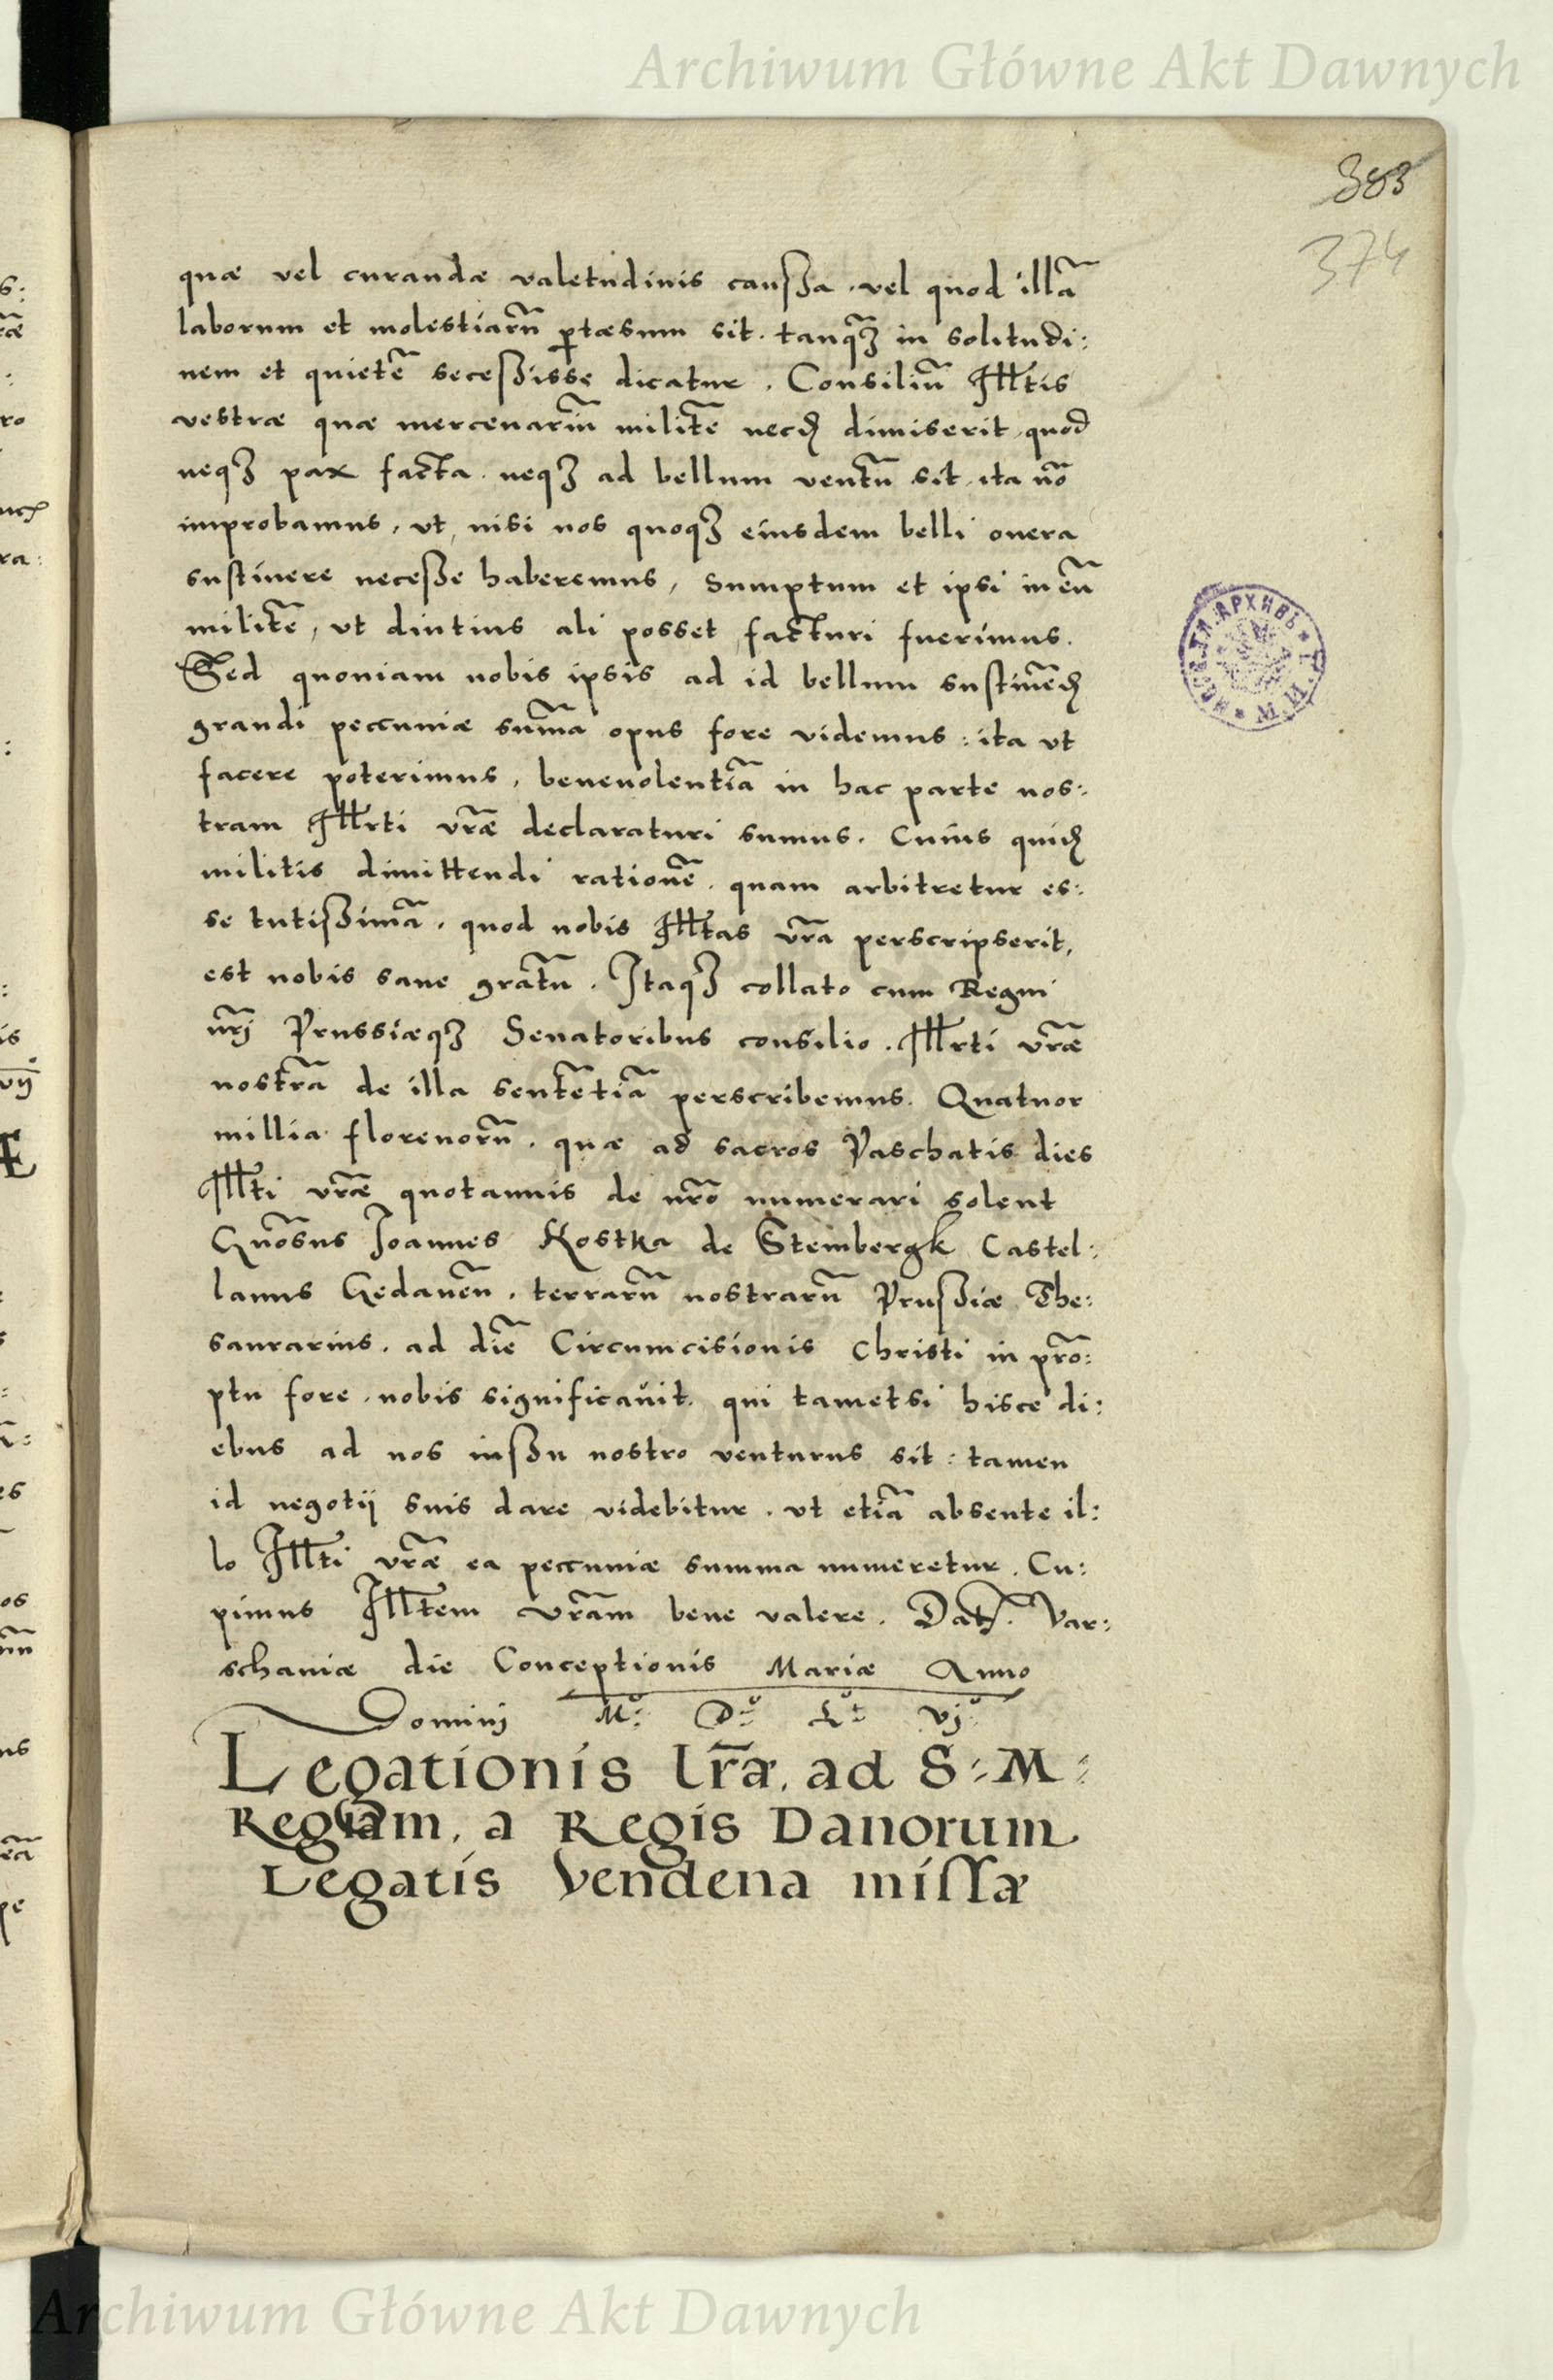 Archiwum Główne Akt Dawnych
383
374
quæ vel curandæ valetudinis caussa, vel quod illã
laborum et molestiarũ ꝑtæsum sit. tanqꝫ in solitudi:
nem et quietẽ secessisse dicatur. Consiliũ Illtis
vestræ quæ mercenariũ militẽ necꝫ dimiserit, quod
neqꝫ pax facta. neqꝫ ad bellum ventũ sit, ita nõ
improbamus, ut, nisi nos quoqꝫ eiusdem belli onera
sustinere necesse haberemus, sumptum et ipsi in eũ
militẽ, ut diutius ali posset, facturi fuerimus.
Sed quoniam nobis ipsis ad id bellum sustinẽdꝫ
grandi peccuniæ sum̃a opus fore videmus: ita ut
facere poterimus, benevolentiã in hac parte nos:
tram Illrti vr̃æ declaraturi sumus. Cuius quidꝫ
militis dimittendi rationẽ, quam arbitretur es:
se tutissimã, quod nobis Illtas vr̃a perscripserit,
est nobis sane gratũ. Itaqꝫ collato cum Regni
nr̃i Prussiæqꝫ Senatoribus consilio. Illrti vr̃æ
nostrã de illa sentẽtiã perscribemus. Quatuor
millia florenorũ, quæ ad sacros Paschatis dies
Illti vr̃æ quotannis de nr̃o numerari solent
Gnõsus Joannes Kostka de Stembergk Castel:
lanus Gedaneñ. terrarũ nostrarũ Prussiæ The:
saurarius, ad diẽ Circumcisionis Christi in prõ:
ptu fore, nobis significavit. qui tametsi hisce di:
ebus ad nos iussu nostro venturus sit: tamen
id negotij suis dare videbitur, ut etiã absente il:
lo Illti vr̃æ ea peccuniæ summa numeretur. Cu:
pimus Illtem vr̃am bene valere. Datꝫ. Var:
schaviæ die Conceptionis Mariæ Anno
Domini Mº: Dº: Lº: vjº:
Legationis lr̃æ, ad S: M:
Regiam, a Regis Danorum
Legatis Vendena missæ
Archiwum Główne Akt Dawnych